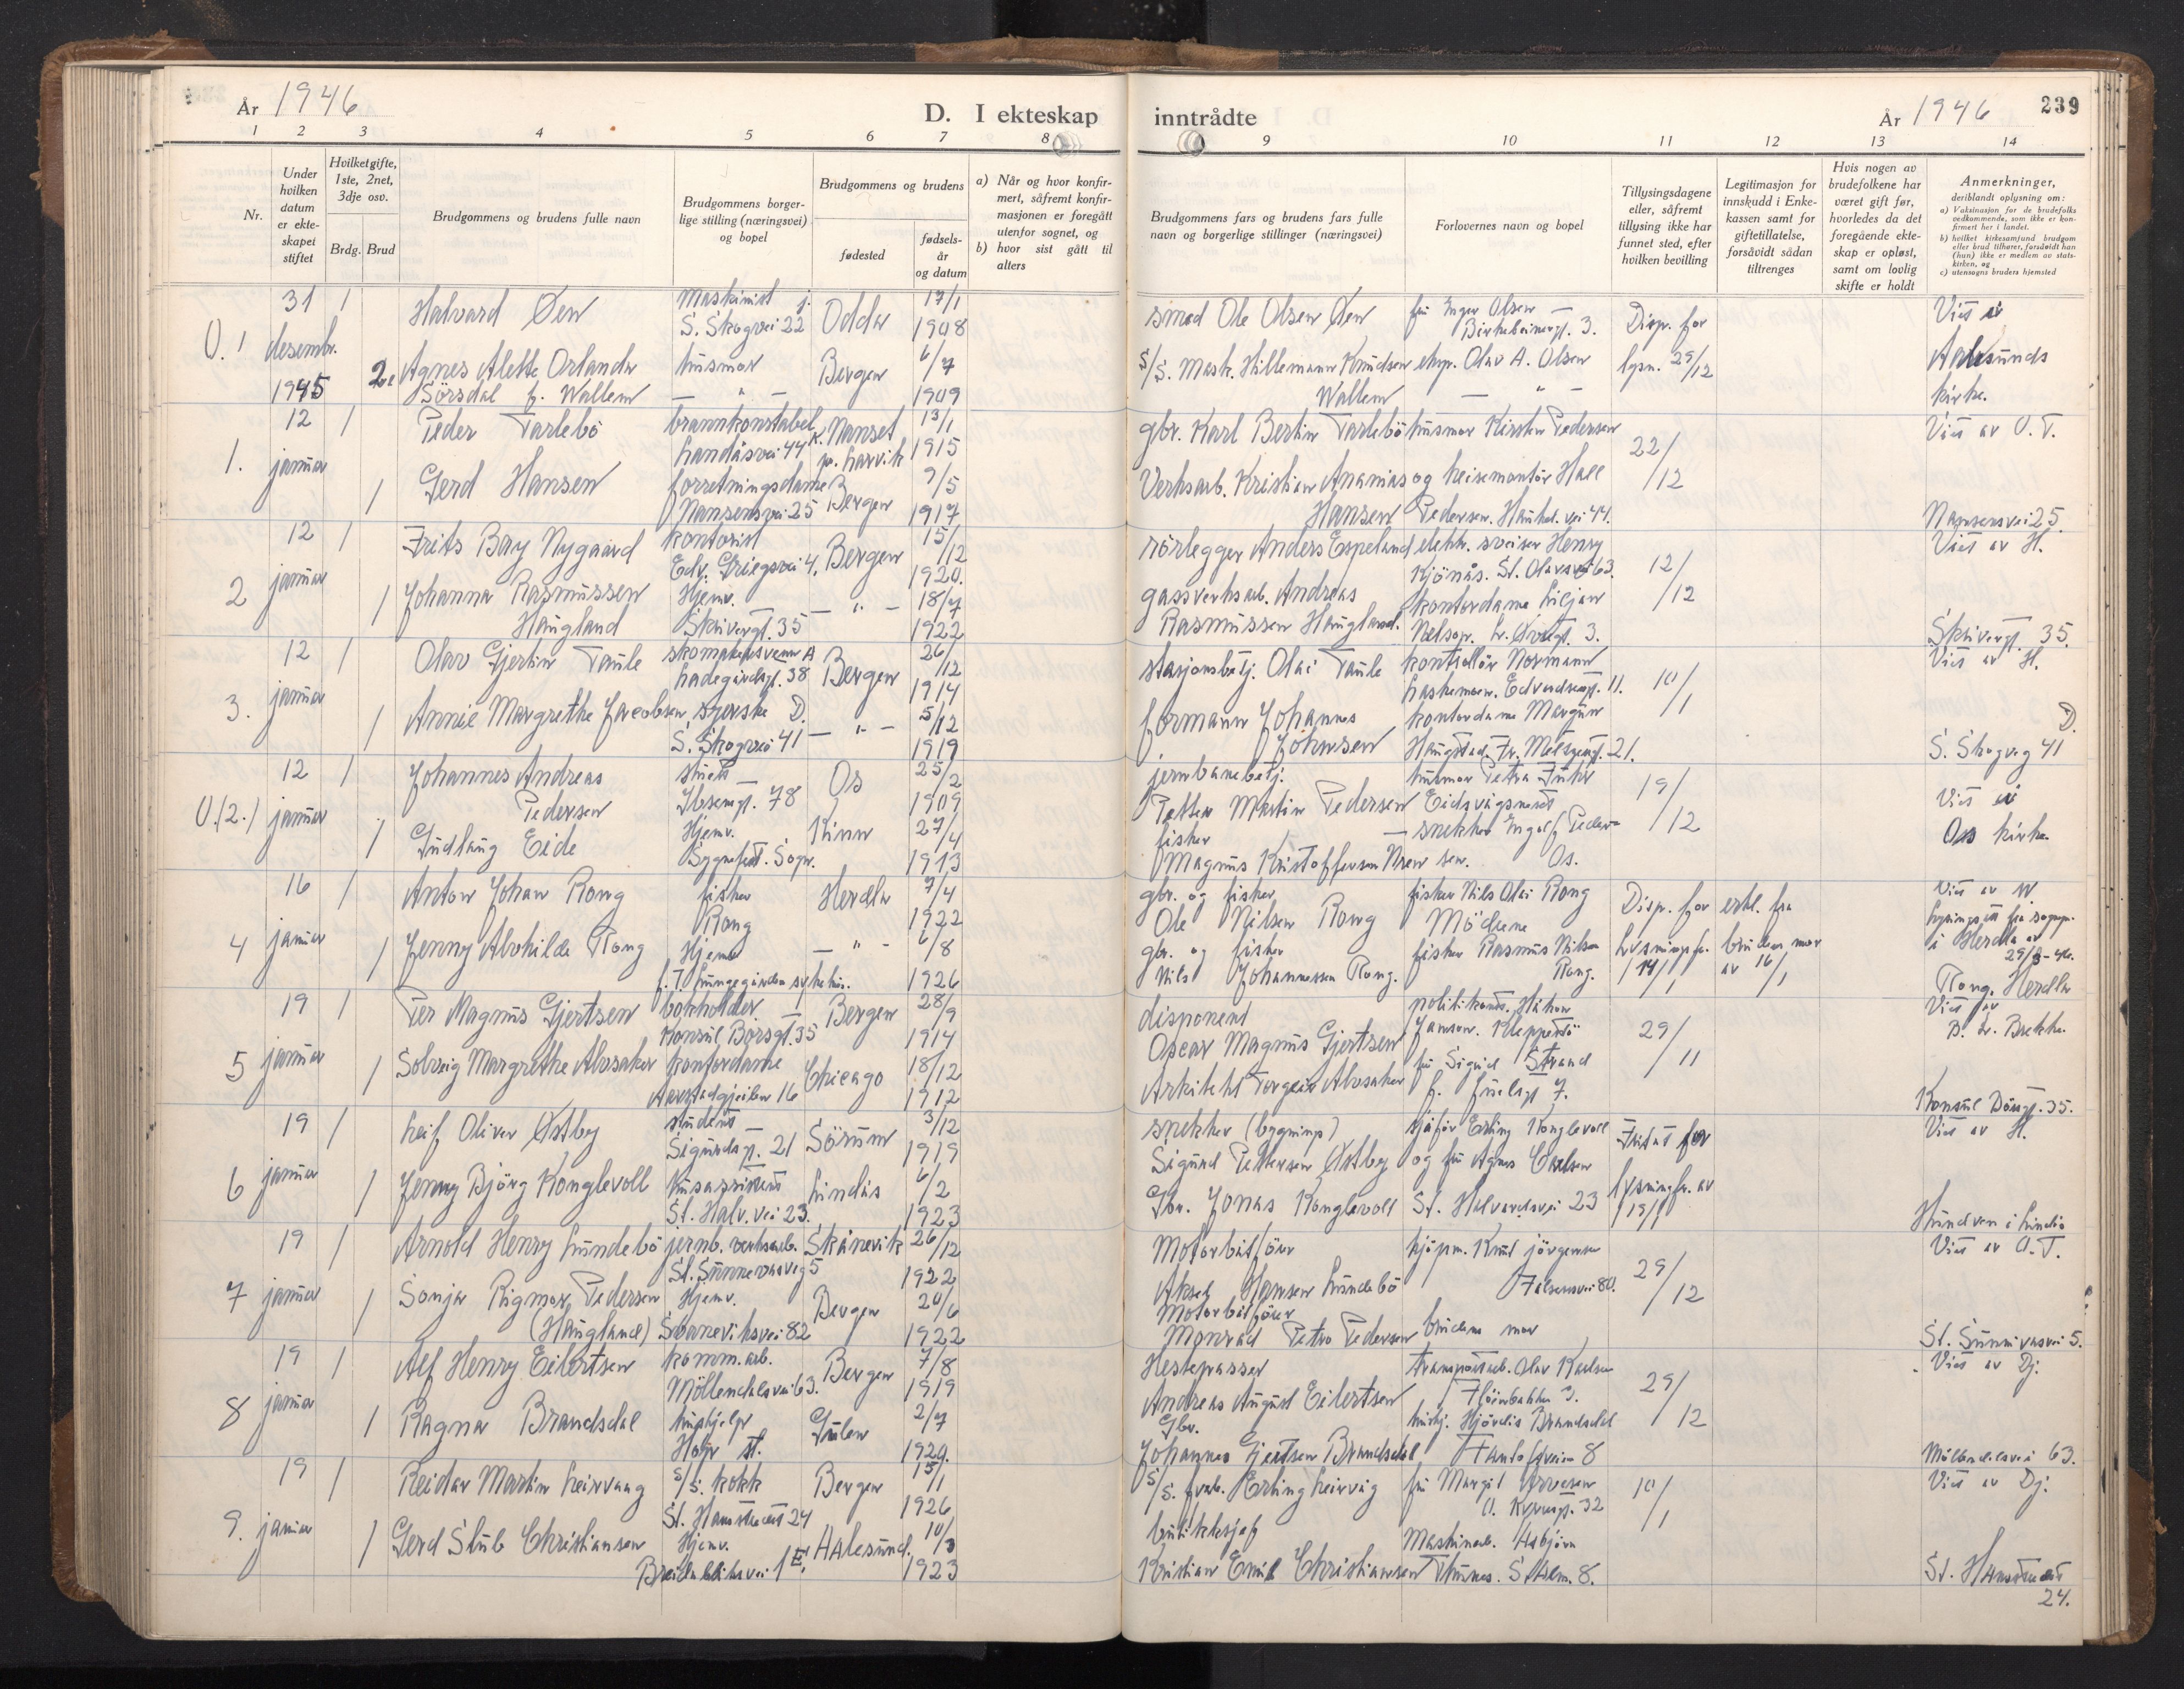 År 1946
D. I ekteskap inntrådte
År 1946
239
1 2 3 4 5 6 7 8 9 10 11 12 13 14
Nr.
Under hvilken datum er ekteskapet stiftet
Hvilket gifte, 1ste, 2net, 3dje osv.
Brdg. Brud
Brudgommens og brudens fulle navn
Brudgommens borgerlige stilling (næringsvei) og bopel
Brudgommens og brudens
fødested
fødselsår og datum
a) Når og hvor konfirmert, såfremt konfirmasjonen er foregått utenfor sognet, og
b) hvor sist gått til alters
Brudgommens fars og brudens fars fulle navn og borgerlige stillinger (næringsvei)
Forlovernes navn og bopel
Tillysingsdagene eller, såfremt tillysing ikke har funnet sted, efter hvilken bevilling
Legitimasjon for innskudd i Enkekassen samt for giftetillatelse, forsåvidt sådan tiltrenges
Hvis nogen av brudefolkene har været gift før, hvorledes da det foregående ekteskap er opløst, samt om lovlig skifte er holdt
Anmerkninger, deriblandt oplysning om:
a) Vaksinasjon for de brudefolks vedkommende, som ikke er konfirmert her i landet.
b) hvilket kirkesamfund brudgom eller brud tilhører, forsåvidt han (hun) ikke er medlem av statskirken, og
c) utensogns bruders hjemsted
U. 1
31 desembr. 1945
1
Halvard Øen
Maskinist j.
S. Skogvei 22
Odda
17/1 1908
smed Ole Olsen Øen
fru Inger Olsen
Birkebeinergt. 3.
Disp. for lysn. 29/12
Viet i Aalesunds kirke.
2e
Agnes Alette Orlanda
Sörsdal f. Wallem
husmor
— " —
Bergen
6/7 1909
S/S. Mask. Hillemann Knudsen Wallem
eksp. Olav A. Olsen
— " —
1.
12 januar
1
Peder Tarlebö
brannkonstabel
Landåsvei 44 K.
Nanset p. Larvik
13/1 1915
gbr. Karl Bertin Tarlebö
husmor Kirsten Pedersen
22/12
Viet av O. T.
1
Gerd Hansen
forretningsdame
Nansensvei 25
Bergen
9/5 1917
Verksarb. Kristian Ananias Hansen
og heisemontör Hall Pedersen. Haukel. vei 44.
Nansensvei 25.
2
12 januar
1
Frits Bay Nygaard
kontorist
Edv. Griegsvei 4.
Bergen
15/12 1920.
rörlegger Anders Espeland
elektr. sveiser Henry Kjönås. St. Olavsvei 63.
12/12
Viet av H.
1
Johanna Rasmussen Haugland
Hjemv.
Skivergt. 35
— " —
18/7 1922
gassverksarb. Andreas Rasmussen Haugland.
kontordame Liljan
Skivergt. 35.
3.
12 januar
1
Olav Gjertin Taule
Ladegårdsgt. 38
Bergen
26/12 1914
stasjonsbetj. Olai Taule
kontrollör Normann
10/1
Viet av H.
1
Annie Margrethe Jacobsen
syerske D.
S. Skogvei 41
— " —
5/12 1919
formann Johannes Johnsen
kontordame Margun Haugstad. Fr. Meltzersgt. 21.
D.
S. Skogveg 41
U. (2.)
12 januar
1
Johannes Andreas Pedersen
Ibsensgt. 78
Os
25/2 1909
jernbanebetj.
Petter Martin Pedersen
husmor Petra Fuhr
Eidsvågsneset
19/12
Viet i Os kirke
1
Gudlaug Eide
Hjemv.
Kinn
27/4 1913
fisker
Magnus Kristoffersen
snekker Ingolf Pedersen. Os.
4
16 januar
1
Anton Johan Rong
fisker
Rong
Herdla
7/4 1922
gbr. og fisker
Ole Nilsen Rong
fisker Nils Olai Rong
Disp. for lysning fr. 14/1
erkl. fra brudens mor av 16/1
Viet av W.
i Herdla av
1
Jenny Alvhilda Rong
Hjemv.
f. T. Lungegården sykehus.
— " —
6/8 1926
gbr. og fisker
Nils Johannessen Rong.
fisker Rasmus Nilsen Rong.
Rong, Herdla
5
19 januar
1
Per Magnus Gjertsen
bokholder
Konsul Börsgt. 35
Bergen
28/9 1914
disponent
Oscar Magnus Gjertsen
Jansen. Kleppestö
29/11
Viet av
B. L. Brekke.
1
Solveig Margrethe Alvsaker
kontordame
Aarstadgjeilen 16
Chicago
18/12 1912
Arkitekt Torgeir Alvsaker
fru Sigrid Strand
Konsul Börsgt. 35.
6
19 januar
1
Leif Oliver Østby
student
Sigurdsgt. 21
Sörum
3/12 1919
snekker (bygnings)
Sigurd Pettersen Østby
sjåför Erling Konglevoll
Fritat for lysning fr. av 19/1
Viet av H.
1
Jenny Björg Konglevoll
husassistent
St. Halv. vei 23.
Lindås
6/2 1923
Gbr. Jonas Konglevoll
og fru Agnes Carlsen
St. Halvardsvei 23
Hundven i Lindås
7
19 januar
1
Arnold Henry Lundebö
jernb. verksarb.
St. Sunnevasveg 5
Skånevik
26/12 1922
Motorbåtförer
Aksel Hansen Lundebö
kjöpm. Knut Jörgensen
29/12
Viet av O. T.
1
Sonja Rigmor Pedersen
(Haugland)
Hjemv.
Solheimsviksvei 82
Bergen
20/6 1922
Motorbåtförer
Monrad Petro Pedersen
brudens mor
St. Sunnivasvei 5.
8
19 januar
1
Alf Henry Eilertsen
komm. arb.
Möllendalsvei 63.
Bergen
7/8 1919
Hestepasser
Andreas August Eilertsen
transportarb. Olav Karlsen
Flöienbakken 3.
29/12
Viet av Dj.
1
Ragna Brandsdal
hushjelp
Gulen
2/7 1920.
Gbr.
Johannes Gjertsen Brandsdal
hushj. Hjördis Brandsdal
Fantoftvei 8
Möllendalsvei 63.
9.
19 januar
1
Reidar Martin Leirvaag
S/S. kokk
St. Hansstredet 24
Bergen
15/1 1926
S/S. fyrb. Erling Leirvåg
fru Margit Arvesen
10/1
Viet av Dj.
1
Gerd Stub Christiansen
Hjemv.
Breidablikvei 1 E.
Aalesund.
10/3 1923
butikksjef
Kristian Emil Christiansen
Maskinarb. Asbjörn
St. Hansstredet 24.